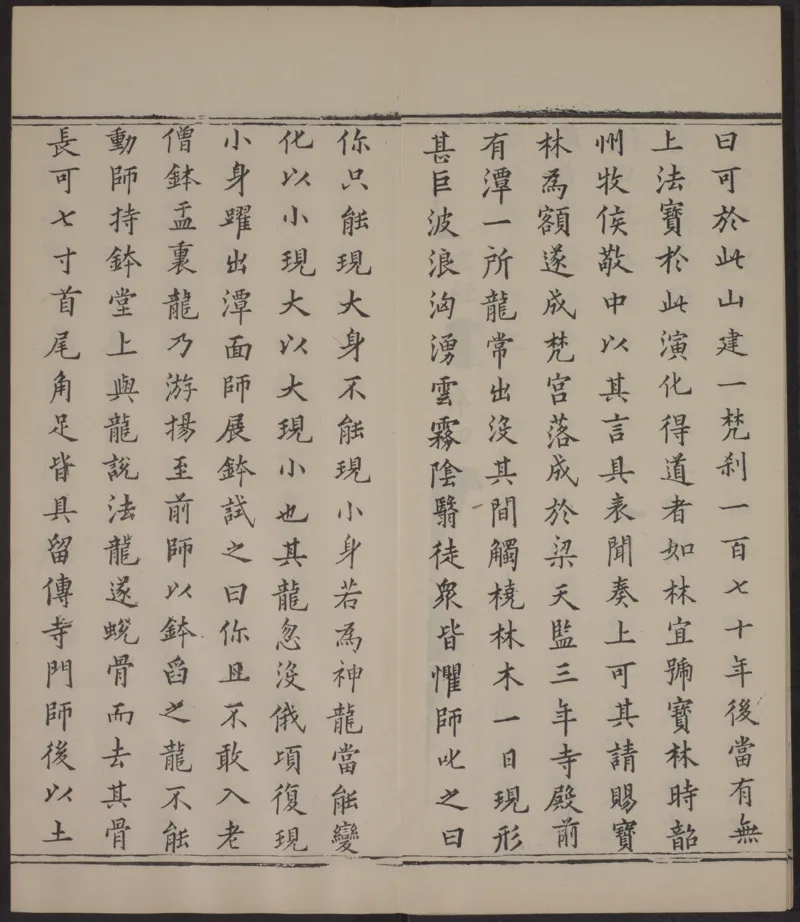 曰可於此山建一梵刹一百七十年後當有無
上法寶於此演化得道者如林宜號寶林時韶
州牧侯敬中以其言具表聞奏上可其請賜寶
林為額遂成梵宮落成於梁天監三年寺殿前
有潭一所龍常出沒其間觸橈林木一日現形
甚巨波浪洶湧雲霧陰翳徒衆皆懼師叱之曰
你只能現大身不能現小身若為神龍當能變
化以小現大以大現小也其龍忽沒俄頃復現
小身躍出潭面師展鉢試之曰你且不敢入老
僧鉢盂裏龍乃游揚至前師以鉢舀之龍不能
動師持鉢堂上與龍說法龍遂蛻骨而去其骨
長可七寸首尾角足皆具留傳寺門師後以土